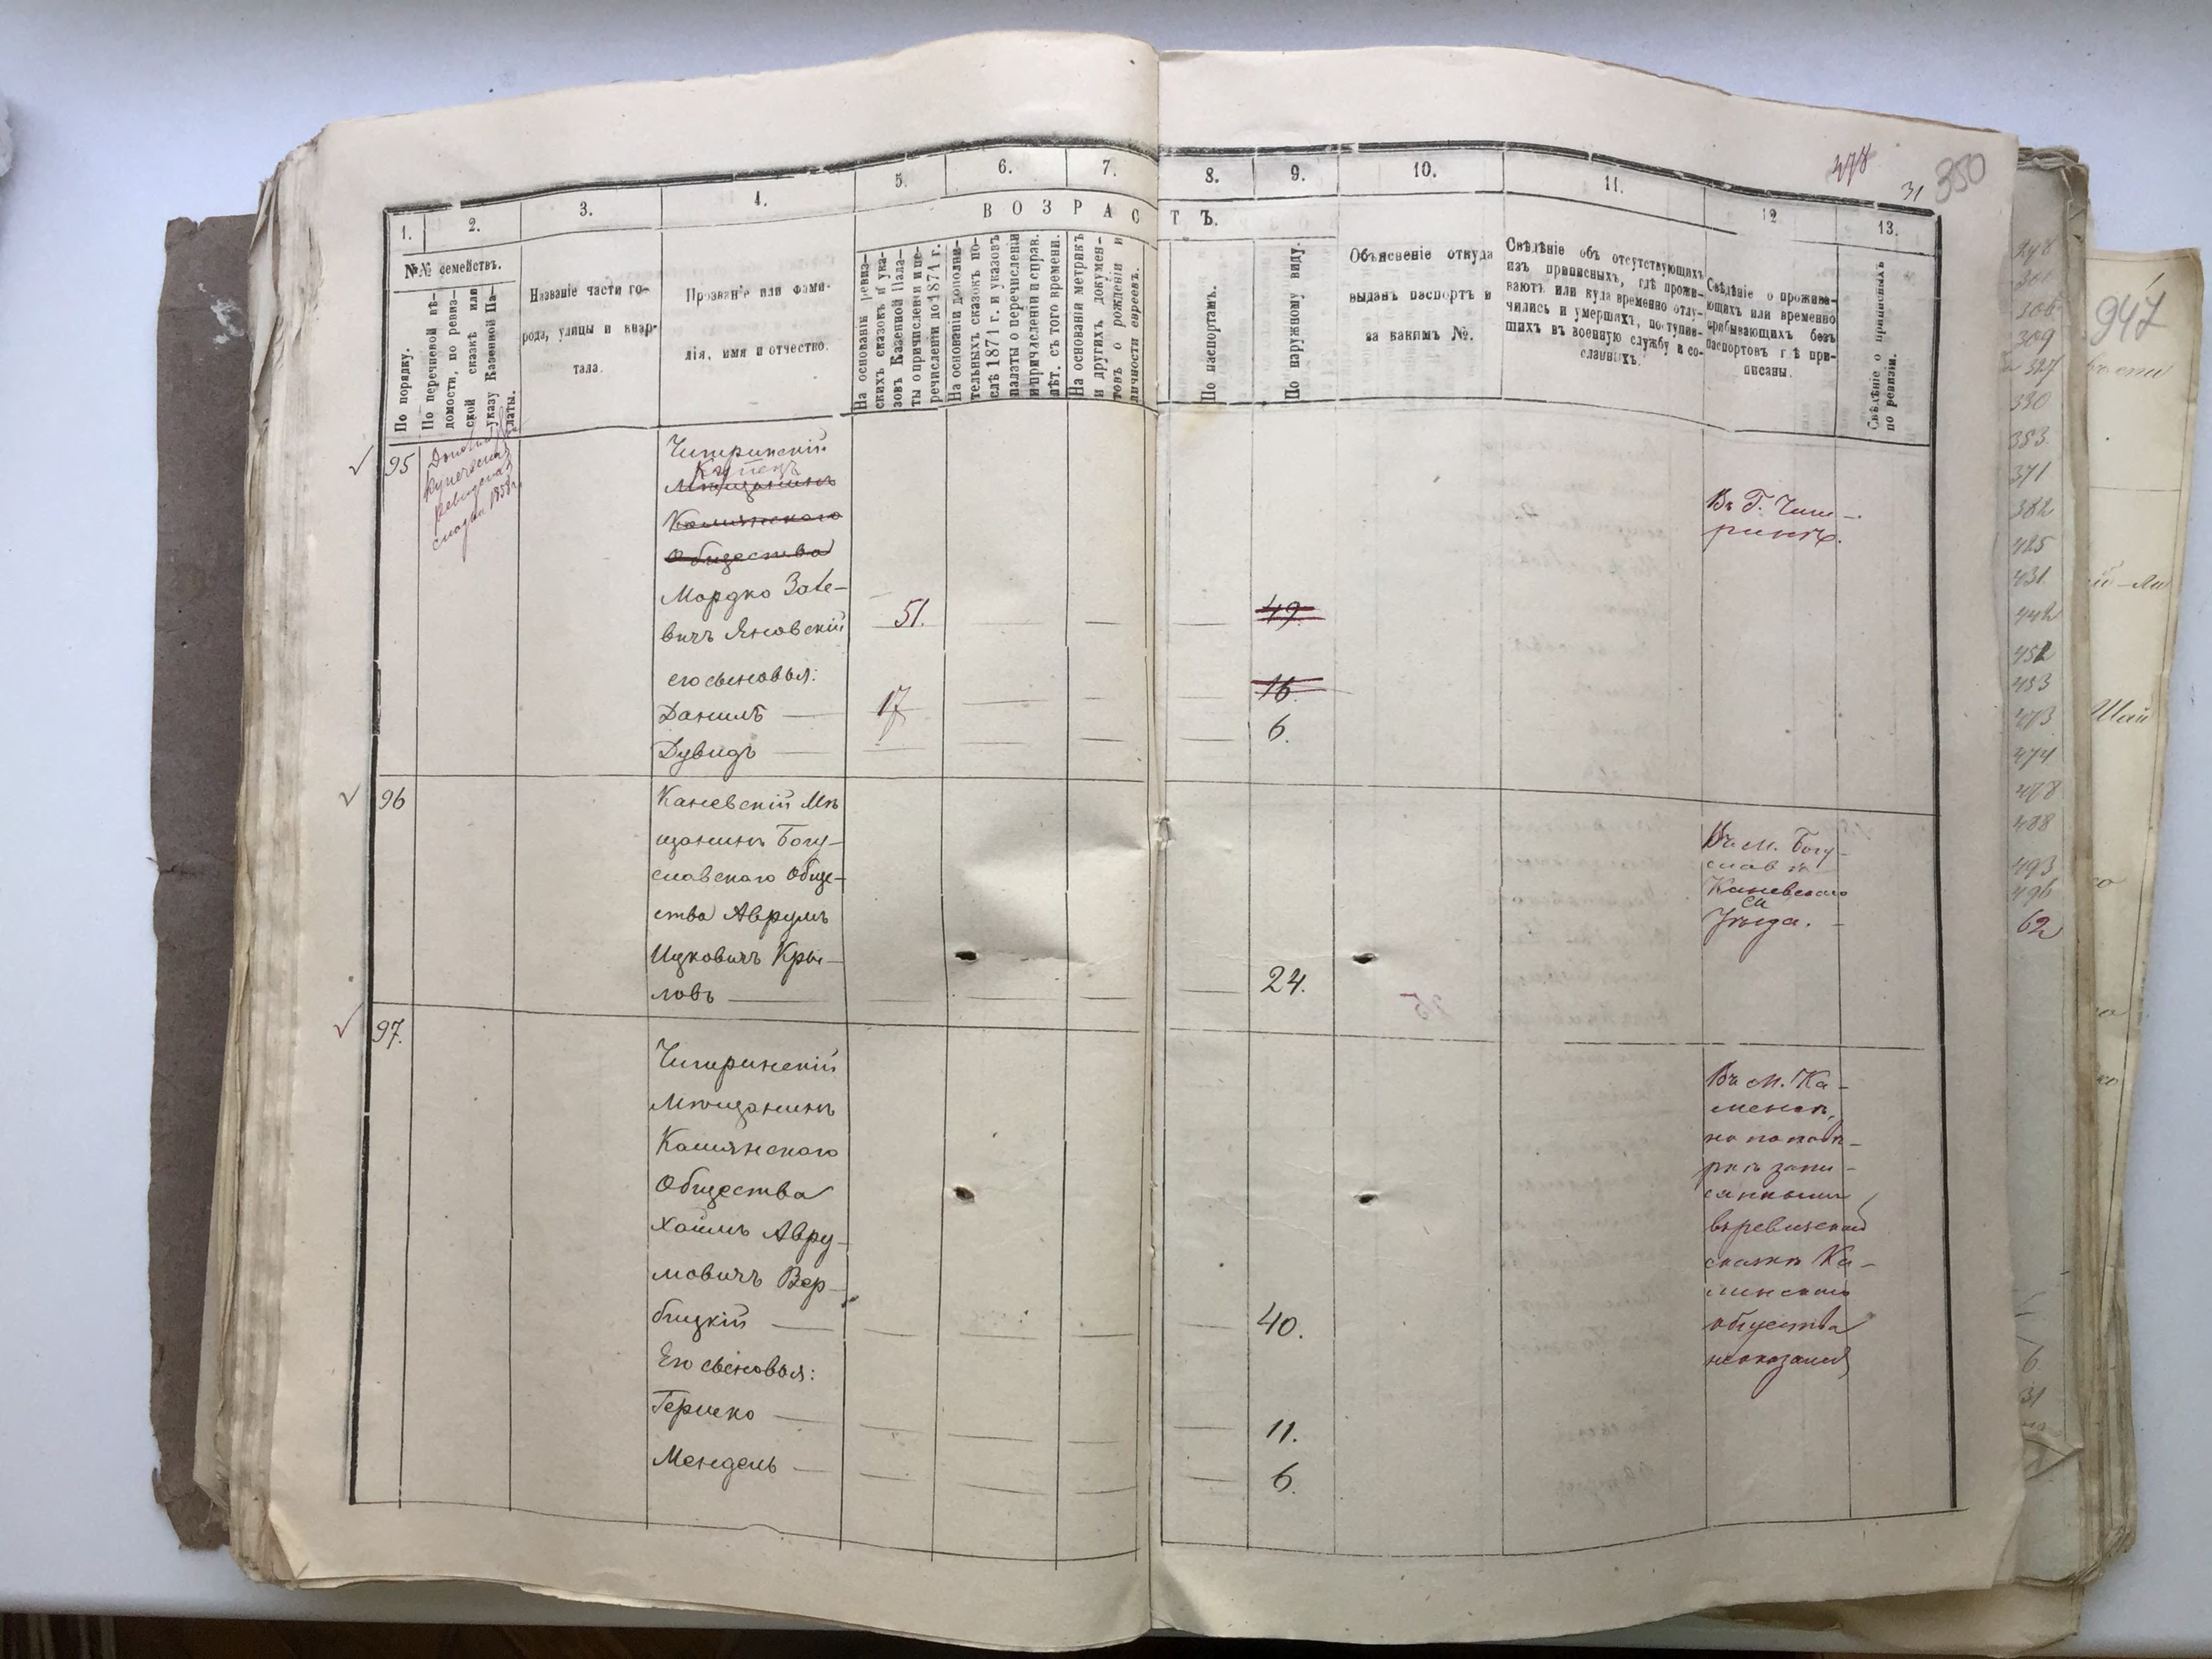 378
31
350
1.
2.
3.
4.
5.
6.
7.
8.
9.
10.
11.
12
13.
ВОЗРАСТЪ.
№№ семействъ.
По порядку.
По перечневой вѣ-
домости, по ревиз-
ской сказкѣ или
указу Казенной Па-
латы.
Названіе части го-
рода, улицы и квар-
тала.
Прозваніе или фами-
лія, имя и отчество.
На основаніи ревиз-
скихъ сказокъ и ука-
зовъ Казенной Пала-
ты о причисленіи и пе-
речисленіи до 1871 г.
На основаніи дополни-
тельныхъ сказокъ по-
слѣ 1871 г. и указовъ
палаты о перечисленіи
и причисленіи и справ.
лѣт. съ того времени.
На основаніи метрикъ
и другихъ докумен-
товъ о рожденіи и
личности евреевъ.
По паспортамъ.
По наружному виду.
Объясненіе откуда
выданъ паспортъ и
за какимъ №.
Свѣдѣніе объ отсутствующихъ
изъ приписныхъ, гдѣ прожи-
ваютъ или куда временно отлу-
чились и умершихъ, поступив-
шихъ въ военную службу и со-
сланныхъ.
Свѣдѣніе о прожива-
ющихъ или временно
прибывающихъ безъ
паспортовъ гдѣ при-
писаны.
Свѣдѣніе о приписныхъ
по ревизіи.
95
купеческая
ревизская
сказка 1858 г.
Чигиринскій
Купецъ
Мѣщанинъ
Камянского
Общества
Мордко Заве-
вичъ Яновскій
51.
49.
его сыновья:
Данилъ
17
16.
Дувидъ
6.
Въ Г. Чиги-
ринѣ.
96
Каневскій Мѣ
щанинъ Богу-
славского Обще-
ства Аврумъ
Ицковичъ Кры-
ловъ
24.
Въ М. Богу-
славѣ
Каневского
Уѣзда.
97.
Чигиринскій
Мѣщанинъ
Камянского
Общества
Хаимъ Авру-
мовичъ Вер-
бицкій
40.
Его сыновья:
Гершко
11.
Мендель
6.
Въ М. Ка-
менкѣ,
но по повѣ-
ркѣ запи-
саннымъ
въ ревизской
сказкѣ Ка-
минскаго
общества
неоказался
947
330
383
371
382
425
431
442
452
453
473
474
478
488
493
496
62
6
31